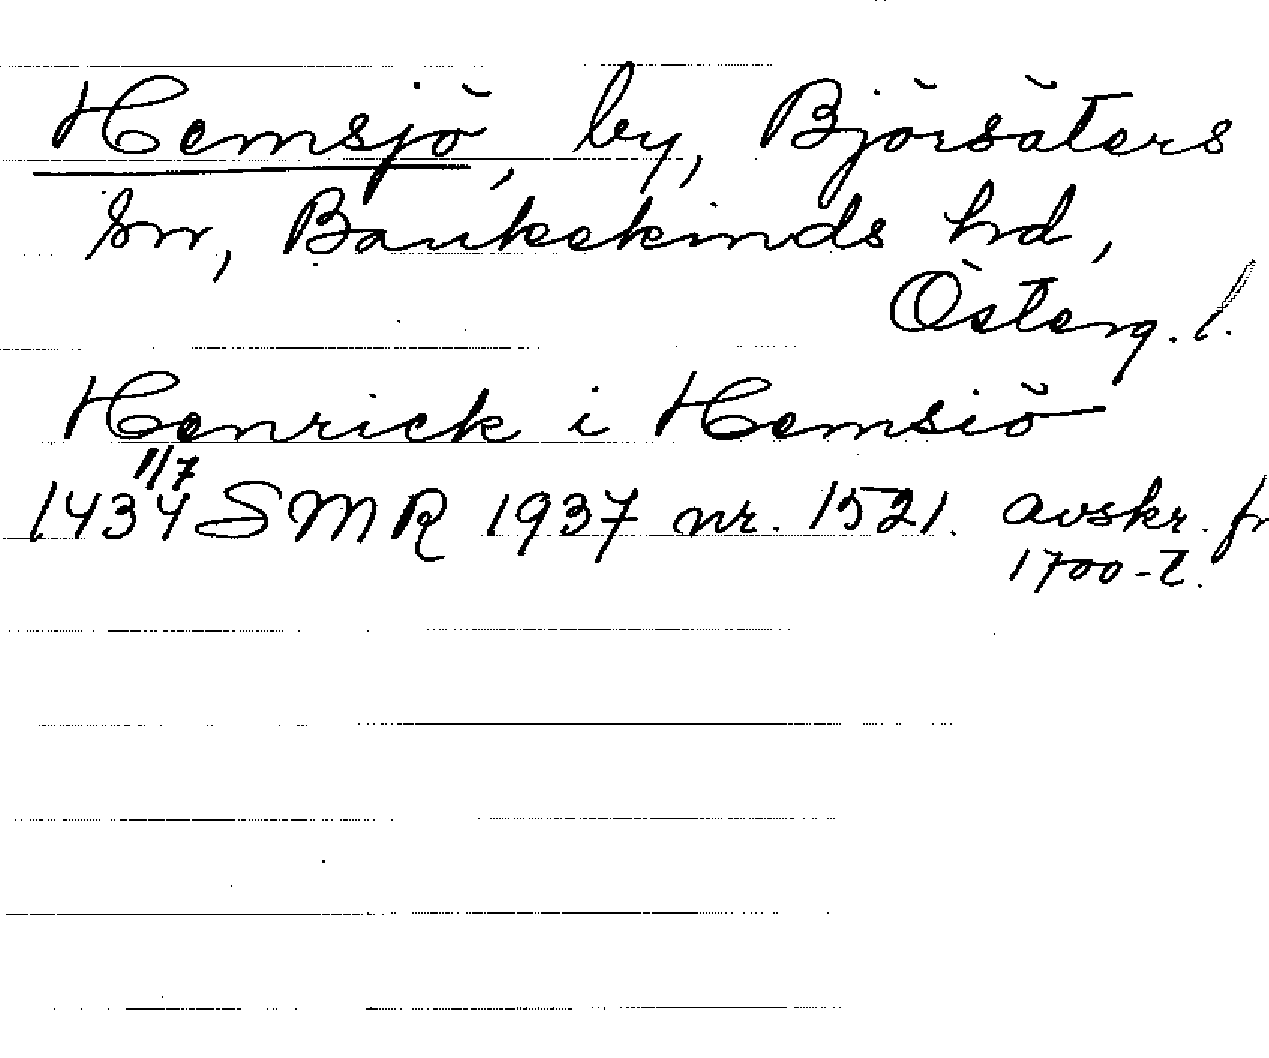 Hemsjö, by, Björsäters
sn, Bankekinds hd,
Österg. l.
Henrick i Hemsiö
1/7
1434 SMR 1937 nr. 1521. avskr. fr
1700-t.